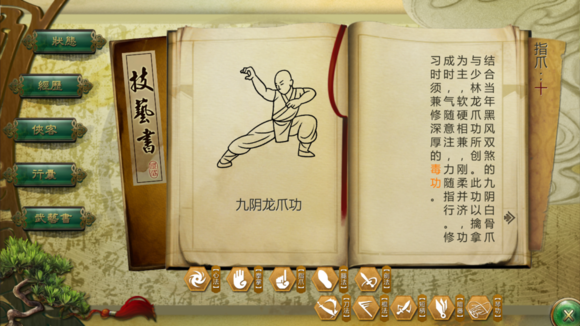 狀態
經歷
俠客
行囊
技藝書
技藝書
九阴龙爪功
指爪:十
结合当年黑风双煞的九阴白骨爪
与少林龙爪功所创。此功以擒拿
为主,软硬相兼,刚柔并济,功
成时,气随意注,力随指行。修
习时须兼修深厚的毒功。